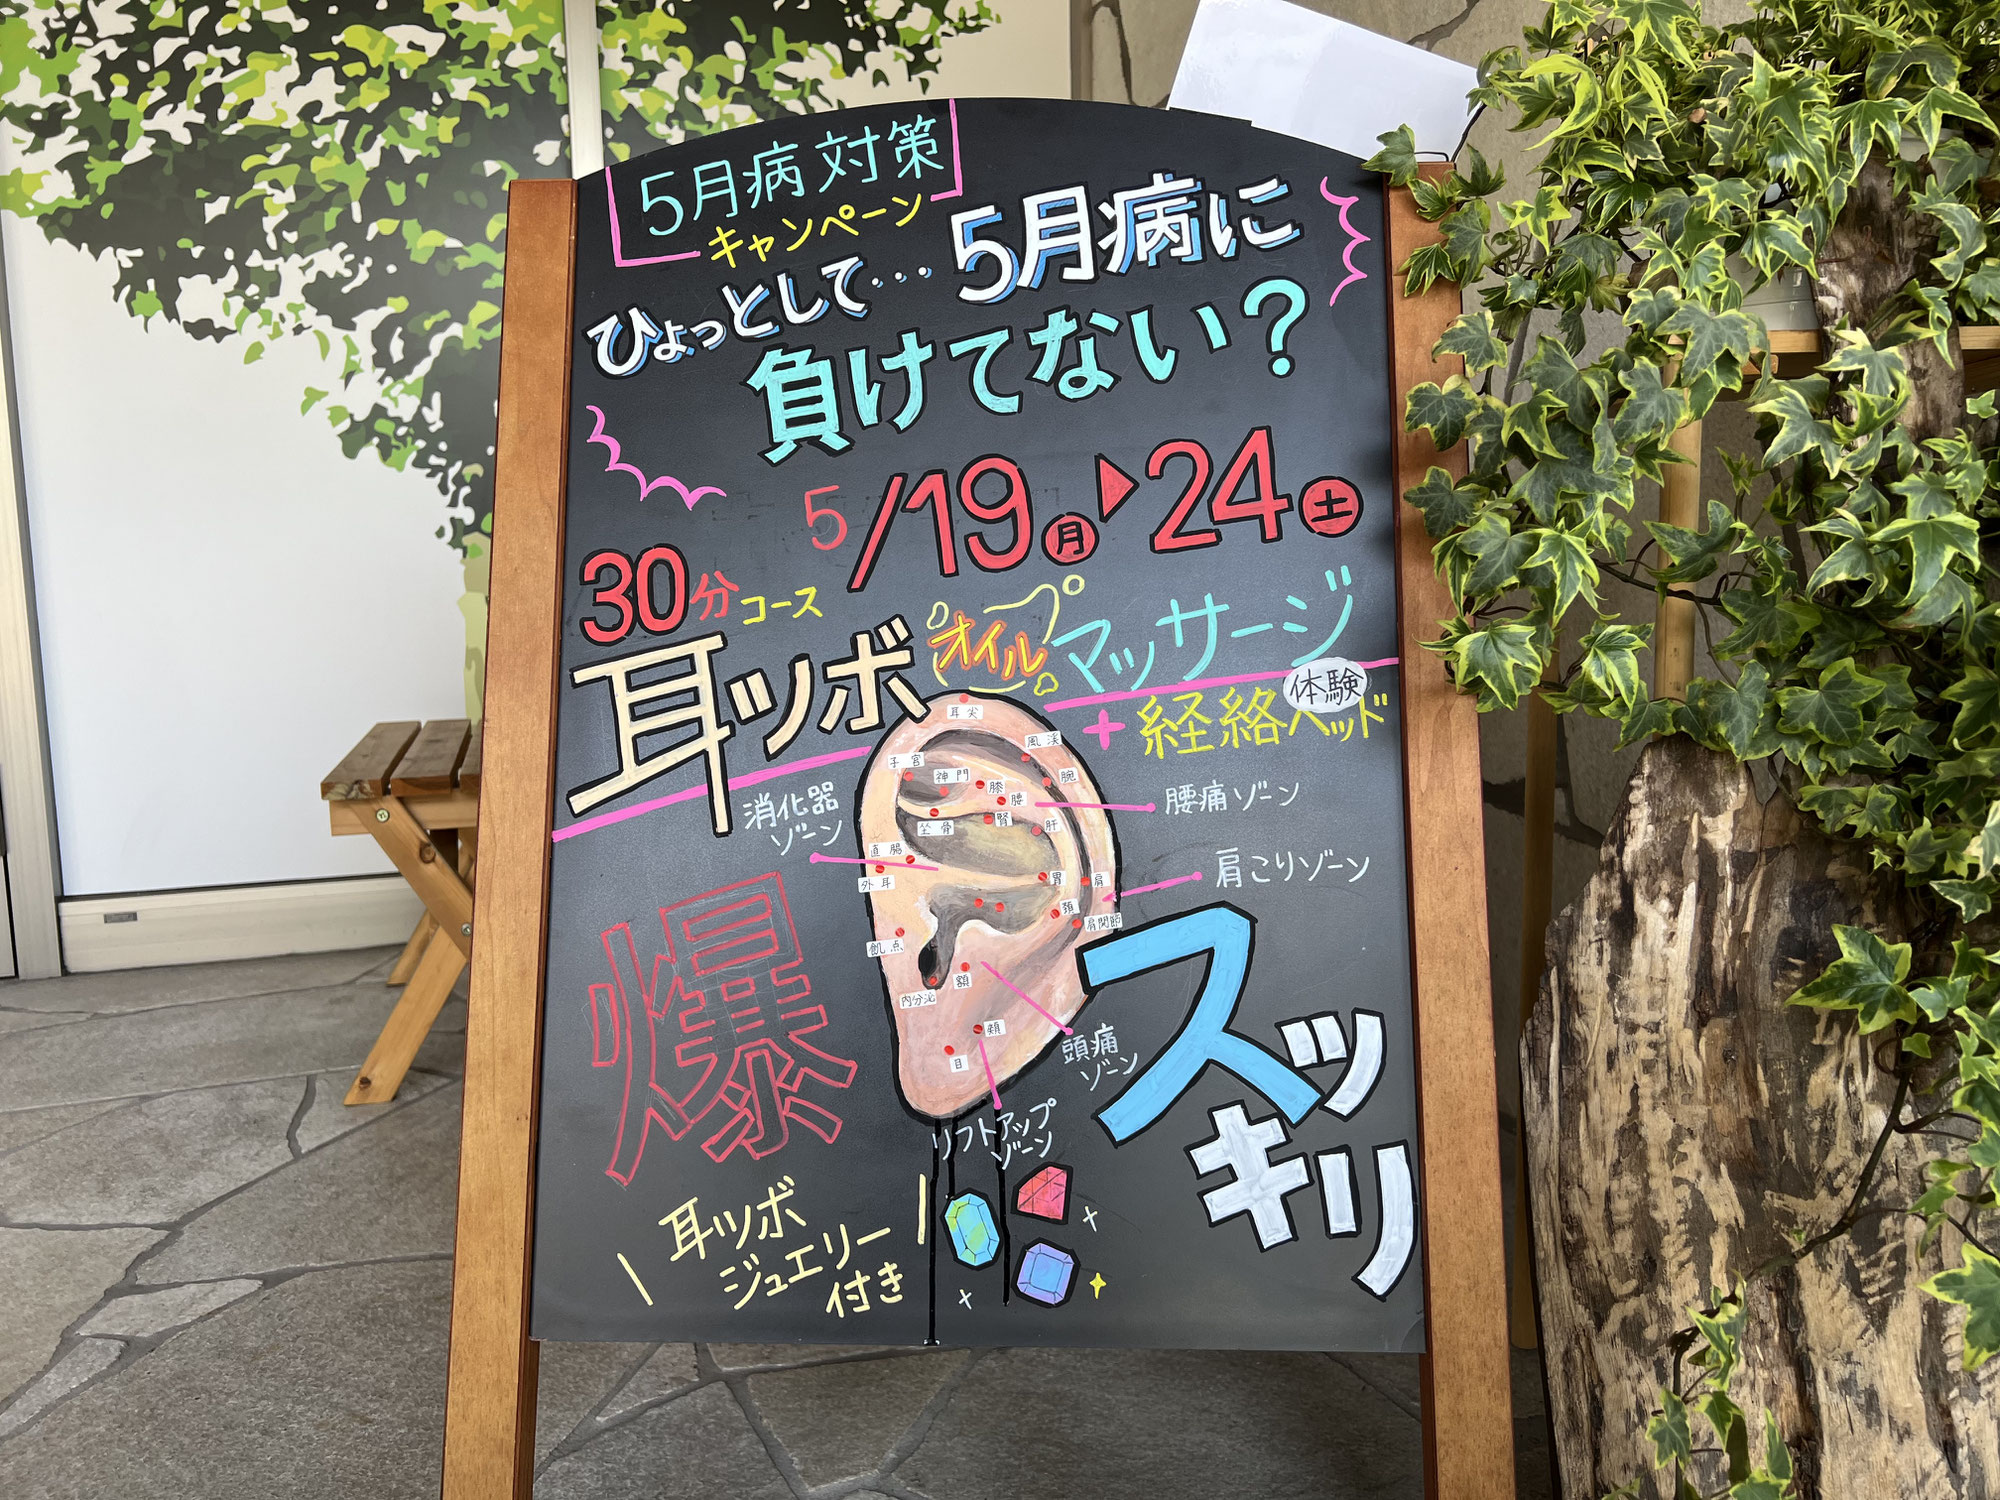 5月病対策
キャンペーン
ひょっとして… 5月病に
負けてない?
5/19月▶24土
30分コース
耳ツボ オイル マッサージ
+経絡ベッド 体験
耳尖
風渓
子宮
神門
腕
膝
腰
腰痛ゾーン
消化器
ゾーン
坐骨
腎
肝
直腸
外耳
胃
肩
肩こりゾーン
頚
肩関節
飢点
額
内分泌
頬
目
頭痛
ゾーン
リフトアップ
ゾーン
爆
スッキリ
耳ツボ
ジュエリー
付き